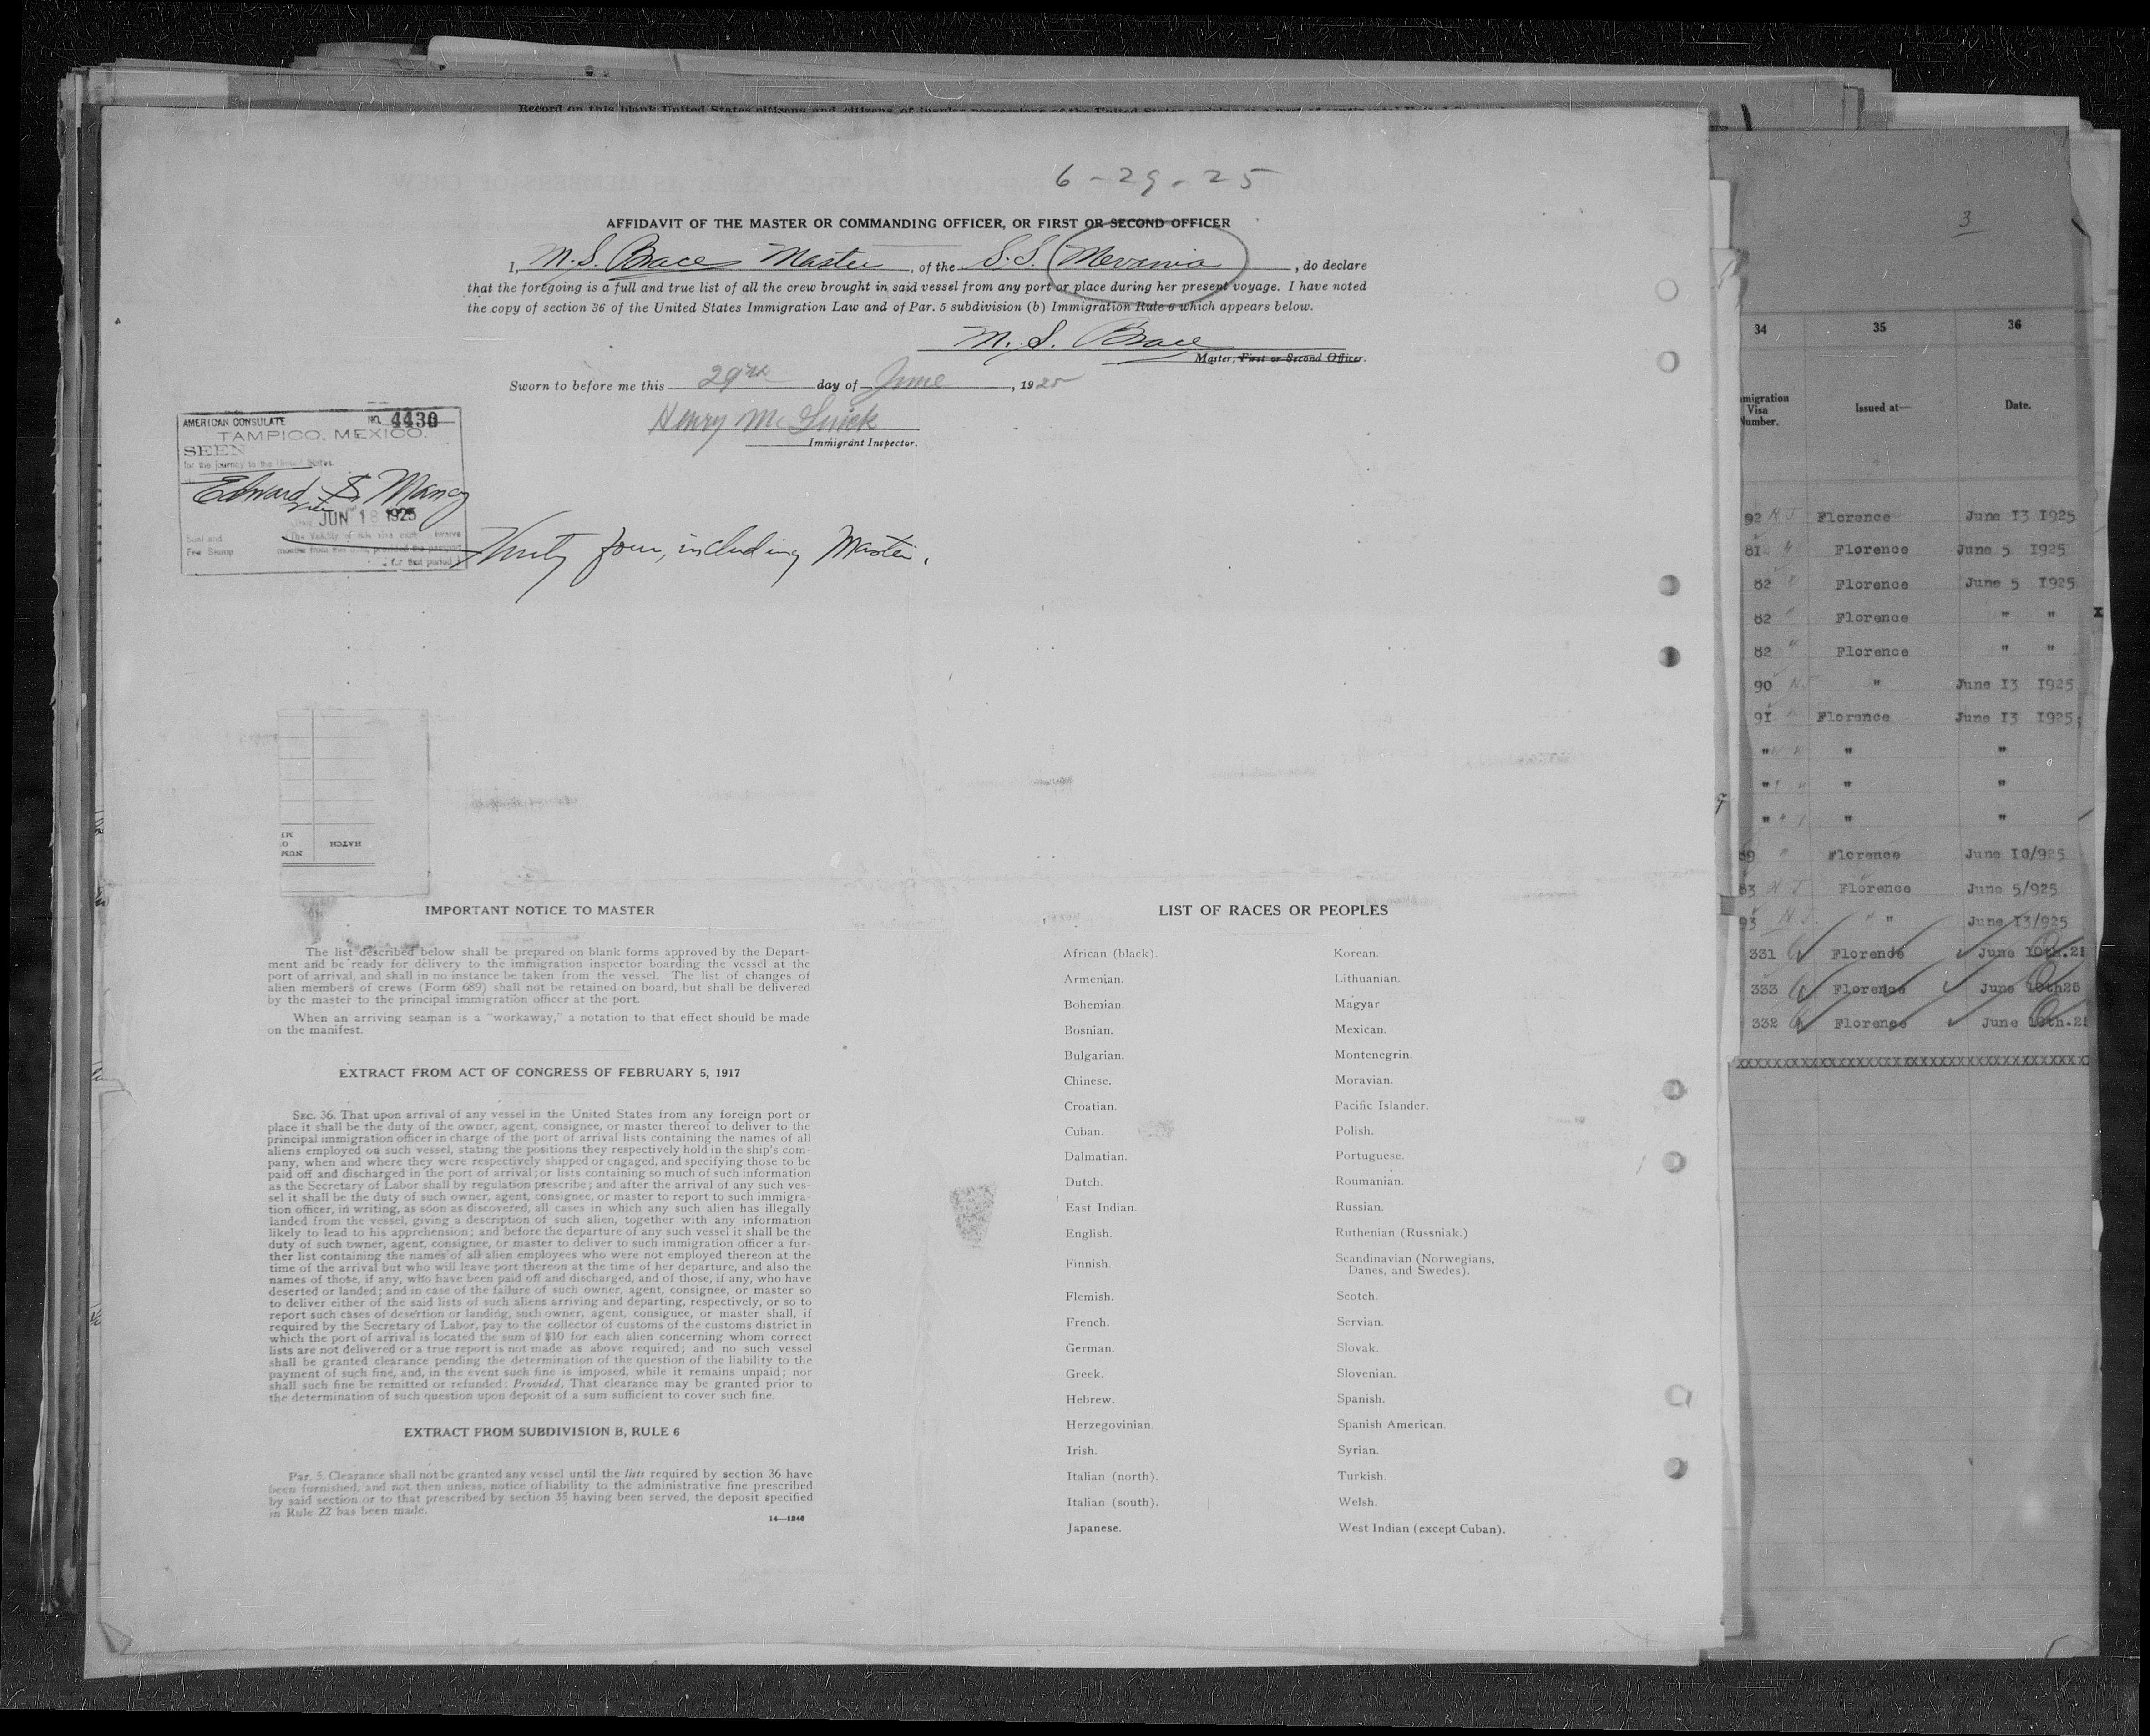 Record on this blank United States citizens and citizens of insular possessions of the United States arriving at a port of continental United States
6-29-25
AFFIDAVIT OF THE MASTER OR COMMANDING OFFICER, OR FIRST OR SECOND OFFICER
I, M.S. Brace Master, of the S.S. Mevania, do declare
that the foregoing is a full and true list of all the crew brought in said vessel from any port or place during her present voyage. I have noted
the copy of section 36 of the United States Immigration Law and of Par. 5 subdivision (b) Immigration Rule 6 which appears below.
M. S. Brace
Master, First or Second Officer.
Sworn to before me this 29th day of June, 1925
Henry McGuick
Immigrant Inspector.
AMERICAN CONSULATE NO. 4430
TAMPICO, MEXICO.
SEEN
for the journey to the United States.
Edward S. Maney
JUN 18 1925
Seal and
Fee Stamp
for that period
Thirty four, including Master.
HATCH
NUM
IMPORTANT NOTICE TO MASTER
The list described below shall be prepared on blank forms approved by the Depart-
ment and be ready for delivery to the immigration inspector boarding the vessel at the
port of arrival, and shall in no instance be taken from the vessel. The list of changes of
alien members of crews (Form 689) shall not be retained on board, but shall be delivered
by the master to the principal immigration officer at the port.
When an arriving seaman is a "workaway," a notation to that effect should be made
on the manifest.
EXTRACT FROM ACT OF CONGRESS OF FEBRUARY 5, 1917
SEC. 36. That upon arrival of any vessel in the United States from any foreign port or
place it shall be the duty of the owner, agent, consignee, or master thereof to deliver to the
principal immigration officer in charge of the port of arrival lists containing the names of all
aliens employed on such vessel, stating the positions they respectively hold in the ship's com-
pany, when and where they were respectively shipped or engaged, and specifying those to be
paid off and discharged in the port of arrival; or lists containing so much of such information
as the Secretary of Labor shall by regulation prescribe; and after the arrival of any such ves-
sel it shall be the duty of such owner, agent, consignee, or master to report to such immigra-
tion officer, in writing, as soon as discovered, all cases in which any such alien has illegally
landed from the vessel, giving a description of such alien, together with any information
likely to lead to his apprehension; and before the departure of any such vessel it shall be the
duty of such owner, agent, consignee, or master to deliver to such immigration officer a fur-
ther list containing the names of all alien employees who were not employed thereon at the
time of the arrival but who will leave port thereon at the time of her departure, and also the
names of those, if any, who have been paid off and discharged, and of those, if any, who have
deserted or landed; and in case of the failure of such owner, agent, consignee, or master so
to deliver either of the said lists of such aliens arriving and departing, respectively, or so to
report such cases of desertion or landing, such owner, agent, consignee, or master shall, if
required by the Secretary of Labor, pay to the collector of customs of the customs district in
which the port of arrival is located the sum of $10 for each alien concerning whom correct
lists are not delivered or a true report is not made as above required; and no such vessel
shall be granted clearance pending the determination of the question of the liability to the
payment of such fine, and, in the event such fine is imposed, while it remains unpaid; nor
shall such fine be remitted or refunded: Provided, That clearance may be granted prior to
the determination of such question upon deposit of a sum sufficient to cover such fine.
EXTRACT FROM SUBDIVISION B, RULE 6
Par. 5. Clearance shall not be granted any vessel until the lists required by section 36 have
been furnished, and not then unless, notice of liability to the administrative fine prescribed
by said section or to that prescribed by section 35 having been served, the deposit specified
in Rule 22 has been made.
14—1246
LIST OF RACES OR PEOPLES
African (black).
Armenian.
Bohemian.
Bosnian.
Bulgarian.
Chinese.
Croatian.
Cuban.
Dalmatian.
Dutch.
East Indian.
English.
Finnish.
Flemish.
French.
German.
Greek.
Hebrew.
Herzegovinian.
Irish.
Italian (north).
Italian (south).
Japanese.
Korean.
Lithuanian.
Magyar
Mexican.
Montenegrin.
Moravian.
Pacific Islander.
Polish.
Portuguese.
Roumanian.
Russian.
Ruthenian (Russniak.)
Scandinavian (Norwegians,
Danes, and Swedes).
Scotch.
Servian.
Slovak.
Slovenian.
Spanish.
Spanish American.
Syrian.
Turkish.
Welsh.
West Indian (except Cuban).
3
34 35 36
Visa
Issued at— Date.
92 NJ Florence June 13 1925
81 " Florence June 5 1925
82 " Florence June 5 1925
82 " Florence " "
82 " Florence " "
90 NJ " June 13 1925
91 " Florence June 13 1925;
" " " "
" " " "
" " " "
89 " Florence June 10/925
83 NJ Florence June 5/925
93 NJ " " June 13/925
331 Florence June 10th.25
333 Florence June 10th25
332 Florence June 10th.25
xxxxxxxxxxxxxxxxxxxxxxxxxxxxxxxxxxx